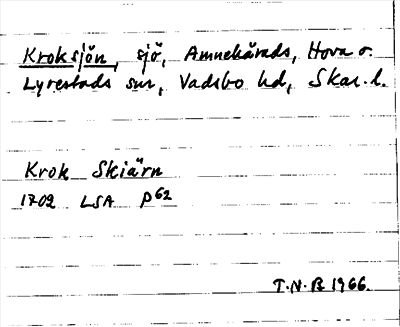 Kroksjön, sjö, Amnehärads, Hova o.
Lyrestads snr, Vadsbo hd, Skar. l.
Krok Skiärn
1702 LSA P62
T.N.B. 1966.